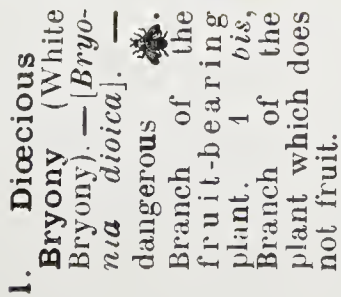 1. Diœcious
Bryony (White
Bryony). — [Bryo-
nia dioica]. —
dangerous .
Branch of the
fruit-bearing
plant. 1 bis,
Branch of the
plant which does
not fruit.